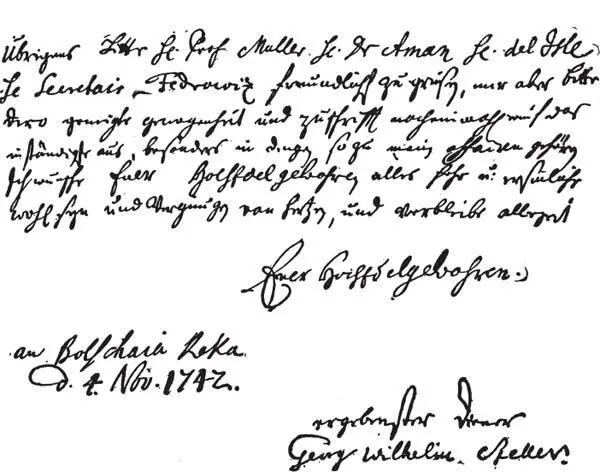 Übrigens bitte H. Prof Muller. H. Dr Aman H. del Isle
H. Secretair Fedrowiz freundlich zu grüßen, mir aber bitte
dero geneigte gewogenheit und zuschrifft nocheinmahl auf das
inständigste aus, besonders in dingen so zu mein affairen gehören
ich wünsche Euer Hochedelgebohren alles hohe u: ersinliche
wohlseyn und Vergnügen von hertzen, und verbleibe allezeit
Euer Hochedelgebohren.
an Bolschaia Reka
d. 4. Nov. 1742.
ergebenster diener
Georg Wilhelm Steller.